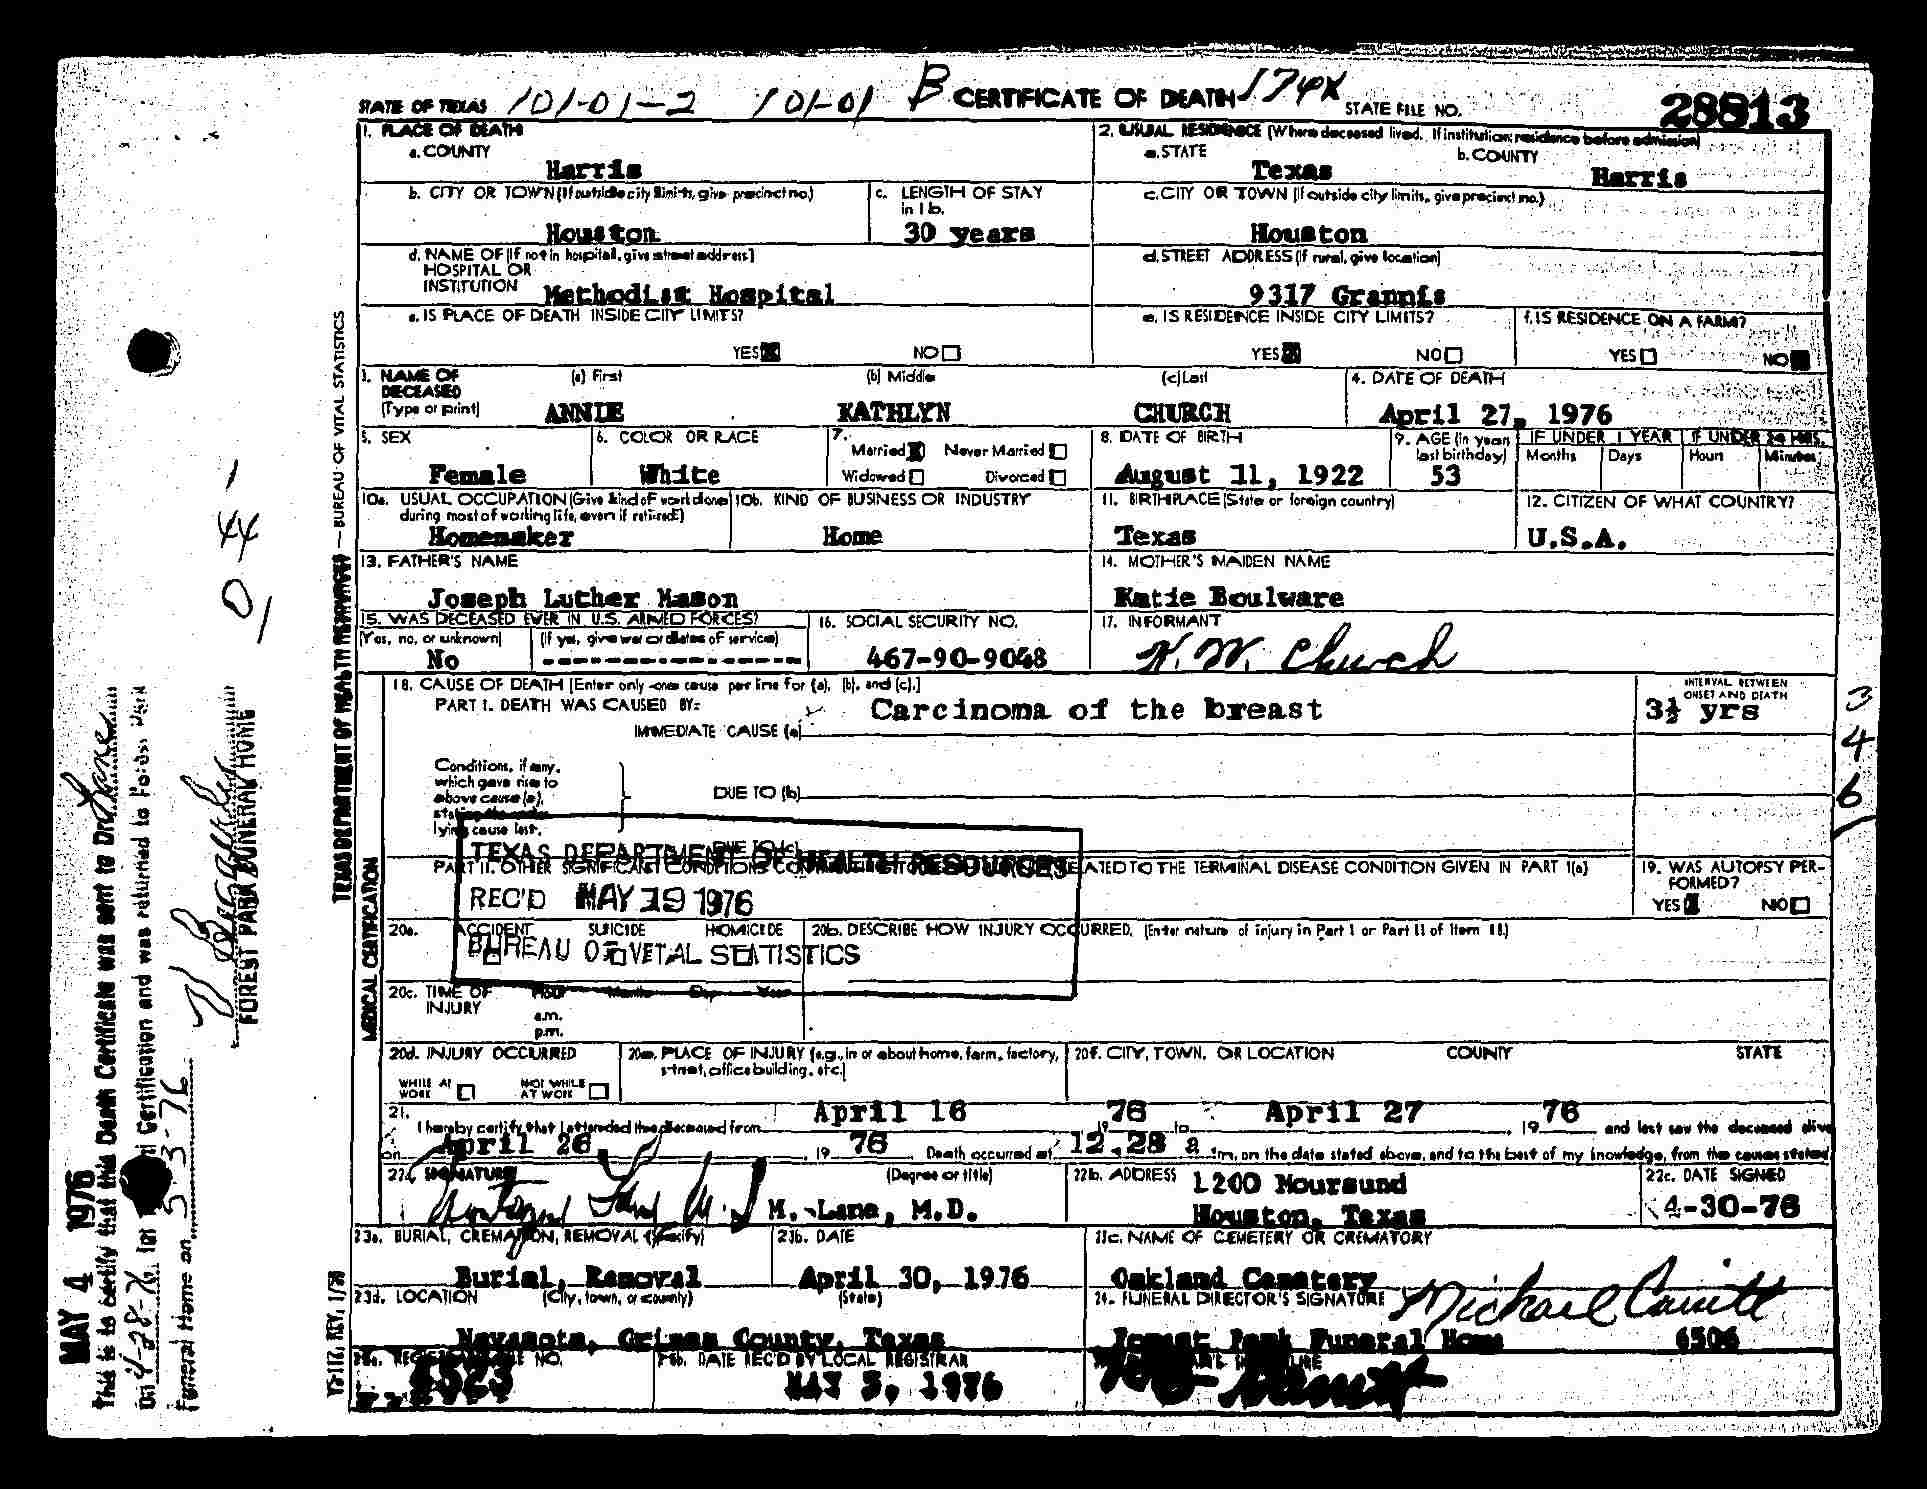 STATE OF TEXAS 101-01-2 101-01 B CERTIFICATE OF DEATH 174X STATE FILE NO. 28813
1. PLACE OF DEATH
a. COUNTY
Harris
2. USUAL RESIDENCE (Where deceased lived. If institution: residence before admission)
a. STATE
Texas
b. COUNTY
Harris
b. CITY OR TOWN (If outside city limits, give precinct no.)
Houston
c. LENGTH OF STAY
in 1b.
30 years
c. CITY OR TOWN (If outside city limits, give precinct no.)
Houston
d. NAME OF (If not in hospital, give street address)
HOSPITAL OR
INSTITUTION
Methodist Hospital
d. STREET ADDRESS (If rural, give location)
9317 Grannis
e. IS PLACE OF DEATH INSIDE CITY LIMITS?
YES NO
e. IS RESIDENCE INSIDE CITY LIMITS?
YES NO
f. IS RESIDENCE ON A FARM?
YES NO
3. NAME OF
DECEASED
(Type or print)
(a) First
ANNIE
(b) Middle
KATHLYN
(c) Last
CHURCH
4. DATE OF DEATH
April 27, 1976
5. SEX
Female
6. COLOR OR RACE
White
7.
Married Never Married
Widowed Divorced
8. DATE OF BIRTH
August 11, 1922
9. AGE (In years
last birthday)
53
IF UNDER 1 YEAR
Months Days
IF UNDER 24 HRS.
Hours Minutes
10a. USUAL OCCUPATION (Give kind of work done
during most of working life, even if retired)
Homemaker
10b. KIND OF BUSINESS OR INDUSTRY
Home
11. BIRTHPLACE (State or foreign country)
Texas
12. CITIZEN OF WHAT COUNTRY?
U.S.A.
13. FATHER'S NAME
Joseph Luther Mason
14. MOTHER'S MAIDEN NAME
Katie Boulware
15. WAS DECEASED EVER IN U.S. ARMED FORCES?
(Yes, no, or unknown) (If yes, give war or dates of service)
No
16. SOCIAL SECURITY NO.
467-90-9048
17. INFORMANT
H. W. Church
18. CAUSE OF DEATH [Enter only one cause per line for (a), (b), and (c).]
PART I. DEATH WAS CAUSED BY:
IMMEDIATE CAUSE (a) Carcinoma of the breast
INTERVAL BETWEEN
ONSET AND DEATH
3½ yrs
Conditions, if any,
which gave rise to
above cause (a),
stating the under-
lying cause last.
DUE TO (b)
DUE TO (c)
TEXAS DEPARTMENT OF HEALTH RESOURCES
REC'D MAY 19 1976
BUREAU OF VITAL STATISTICS
PART II. OTHER SIGNIFICANT CONDITIONS CONTRIBUTING TO RELATED TO THE TERMINAL DISEASE CONDITION GIVEN IN PART I(a)
19. WAS AUTOPSY PER-
FORMED?
YES NO
20a. ACCIDENT SUICIDE HOMICIDE
20b. DESCRIBE HOW INJURY OCCURRED. (Enter nature of injury in Part I or Part II of item 18.)
20c. TIME OF
INJURY
Hour Month Day Year
a.m.
p.m.
20d. INJURY OCCURRED
WHILE AT
WORK
NOT WHILE
AT WORK
20e. PLACE OF INJURY (e.g., in or about home, farm, factory,
street, office building, etc.)
20f. CITY, TOWN, OR LOCATION COUNTY STATE
21.
I hereby certify that I attended the deceased from April 16 1976 to April 27, 1976 and last saw the deceased alive
on April 26, 1976 Death occurred at 12.28 a m, on the date stated above, and to the best of my knowledge, from the causes stated.
22a. SIGNATURE (Degree or title)
M. Lane, M.D.
22b. ADDRESS 1200 Moursund
Houston, Texas
22c. DATE SIGNED
4-30-76
23a. BURIAL, CREMATION, REMOVAL (Specify)
Burial, Removal
23b. DATE
April 30, 1976
23c. NAME OF CEMETERY OR CREMATORY
Oakland Cemetery
23d. LOCATION (City, town, or county) (State)
Navasota, Grimes County, Texas
24. FUNERAL DIRECTOR'S SIGNATURE
Michael Cavitt
Forest Park Funeral Home 6506
25b. DATE REC'D BY LOCAL REGISTRAR
MAY 3, 1976
TEXAS DEPARTMENT OF HEALTH RESOURCES — BUREAU OF VITAL STATISTICS
MEDICAL CERTIFICATION
REV. 1/58
346
044
MAY 4 1976
This is to certify that this Death Certificate was sent to Dr. Lane
On 4-28-76 for Certification and was returned to Forest Park
Funeral Home on 5-3-76
FOREST PARK FUNERAL HOME